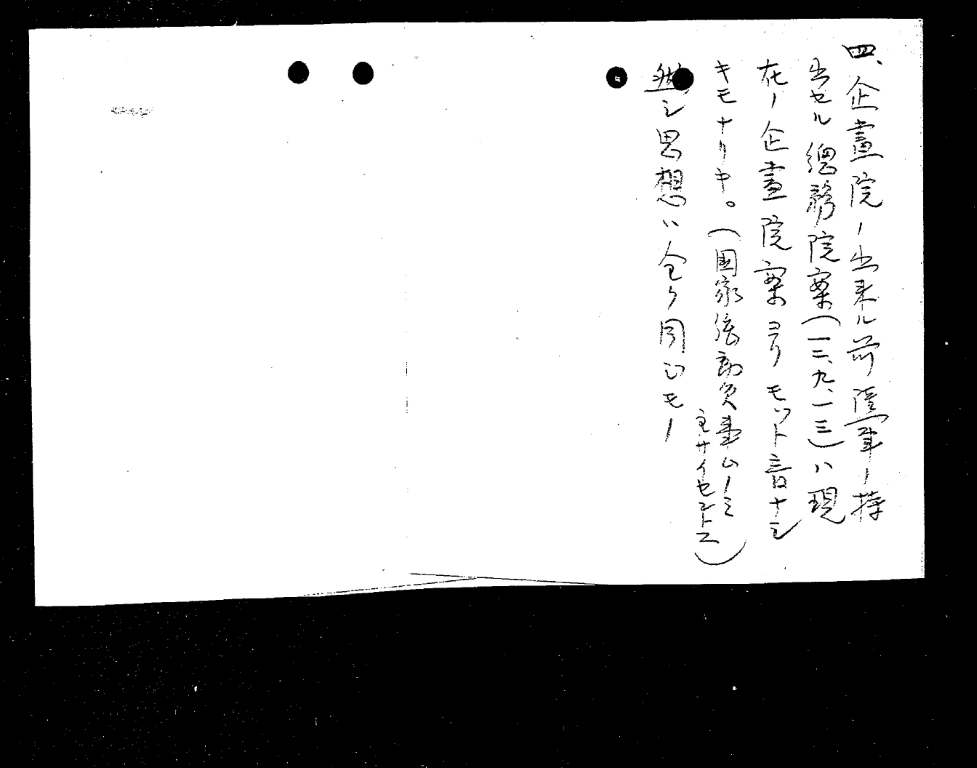 四、企畫院ノ出来ル前陸軍ノ持
出セル總務院案(一二、九、一三)ハ現
在ノ企畫院案ヨリモット
キモナリキ。(國家総動員事ムノミ
主サイセントス)
然シ思想ハ全ク同じモノ